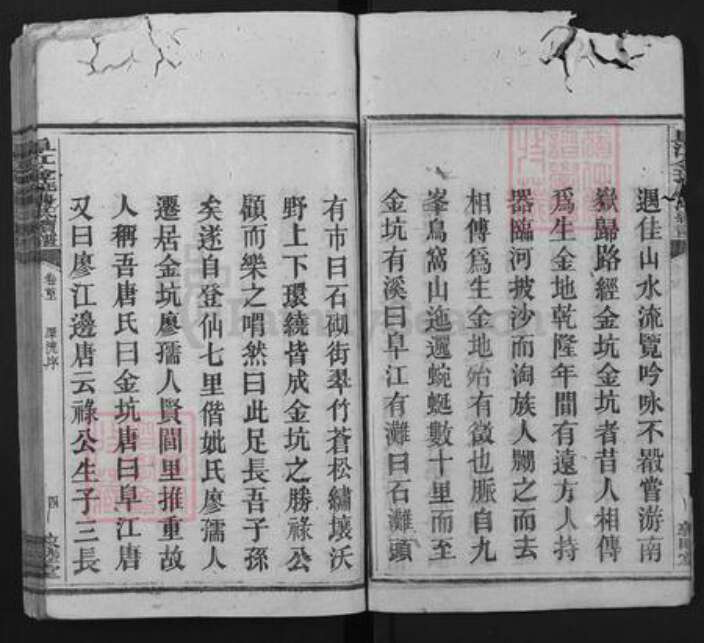 遇佳山水流覽吟咏不輟嘗游南
嶽歸路經金坑金坑者昔人相傳
爲生金地乾隆年間有遠方人持
器臨河披沙而淘族人嬲之而去
相傳爲生金地殆有徵也脈自九
峯鳥窩山迤邐蜿蜒數十里而至
金坑有溪曰阜江有灘曰石灘頭
有市曰石砌街翠竹蒼松繡壤沃
野上下環繞皆成金坑之勝祿公
顧而樂之喟然曰此足長吾子孫
矣遂自登仙七里偕妣氏廖孺人
遷居金坑廖孺人賢閭里推重故
人稱吾唐氏曰金坑唐曰阜江唐
又曰廖江邊唐云祿公生子三長
卷首
源流序
四